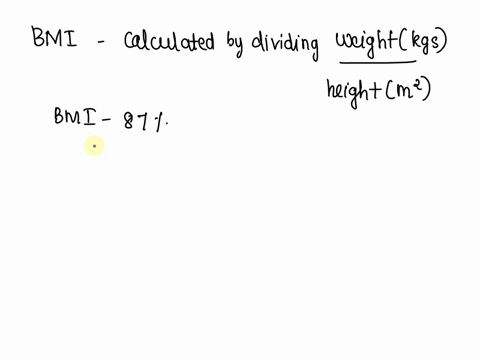 BMI - calculated by dividing weight (kgs)
height (m²)
BMI - 87%.